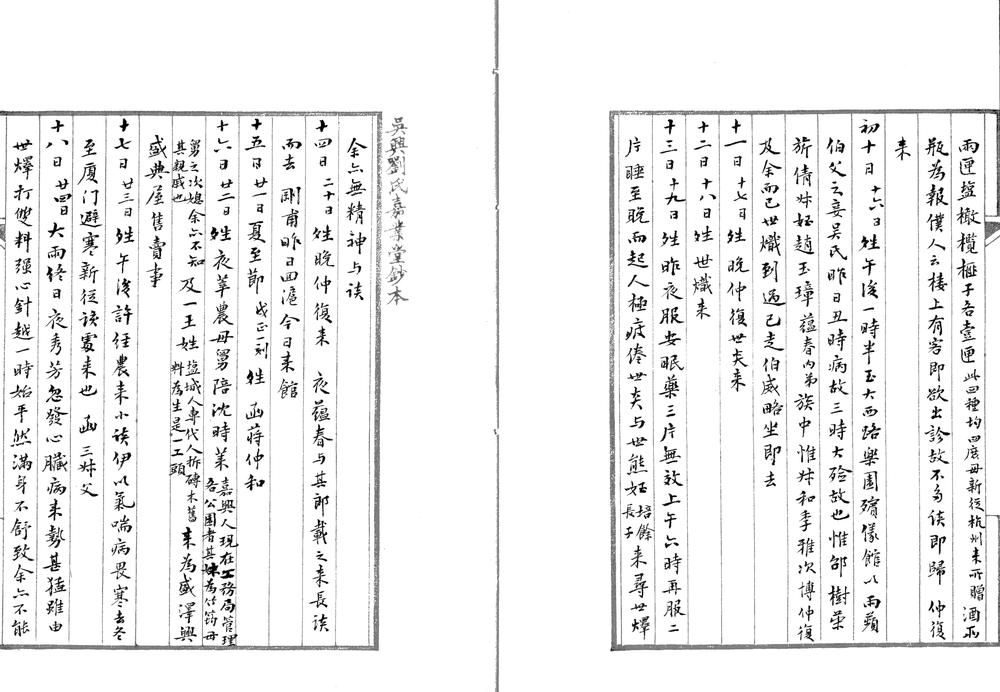 兩匣塩橄欖榧子各壹匣此四種均四庶母新從杭州来所贈酒兩
瓶為報僕人云樓上有客即欲出診故不多談即歸　仲復
来
初十日十六日姓午後一時半至大西路樂園殯儀館以雨蘋
伯父之妾吳氏昨日丑時病故三時大殮故也惟邵樹荣
旂倩妹姪趙玉璋蕴春内弟族中惟妹和季雅次博仲復
及余而已世熾到過已走伯威略坐即去
十一日十七日姓晚仲復世奂来
十二日十八日姓世熾来
十三日十九日姓昨夜服安眠藥三片無效上午六時再服二
片睡至晚而起人極疲倦世奂与世熊姪培餘長子来尋世燡
吳興劉氏嘉業堂鈔本
余亦無精神与談
十四日二十日姓晚仲復来　夜蕴春与其郎載之来長談
而去　剛甫昨日回滬今日来館
十五日廿一日夏至節戌正一刻姓　函蔣仲和
十六日廿二日姓夜莘農母舅陪沈時葉嘉興人現在工務局管理各公園者其妹為竹筠母
舅之次媳余亦不知其親戚也及一王姓塩城人專代人拆磚木舊料為生是一工頭来為盛澤興
盛典屋售賣事
十七日廿三日姓午後許经農来小談伊以氣喘病畏寒去冬
至厦门避寒新從该處来也　函三妹父
十八日廿四日大雨终日夜秀芳忽發心臟病来勢甚猛雖由
世燡打雙料强心針越一時始平然滿身不舒致余亦不能